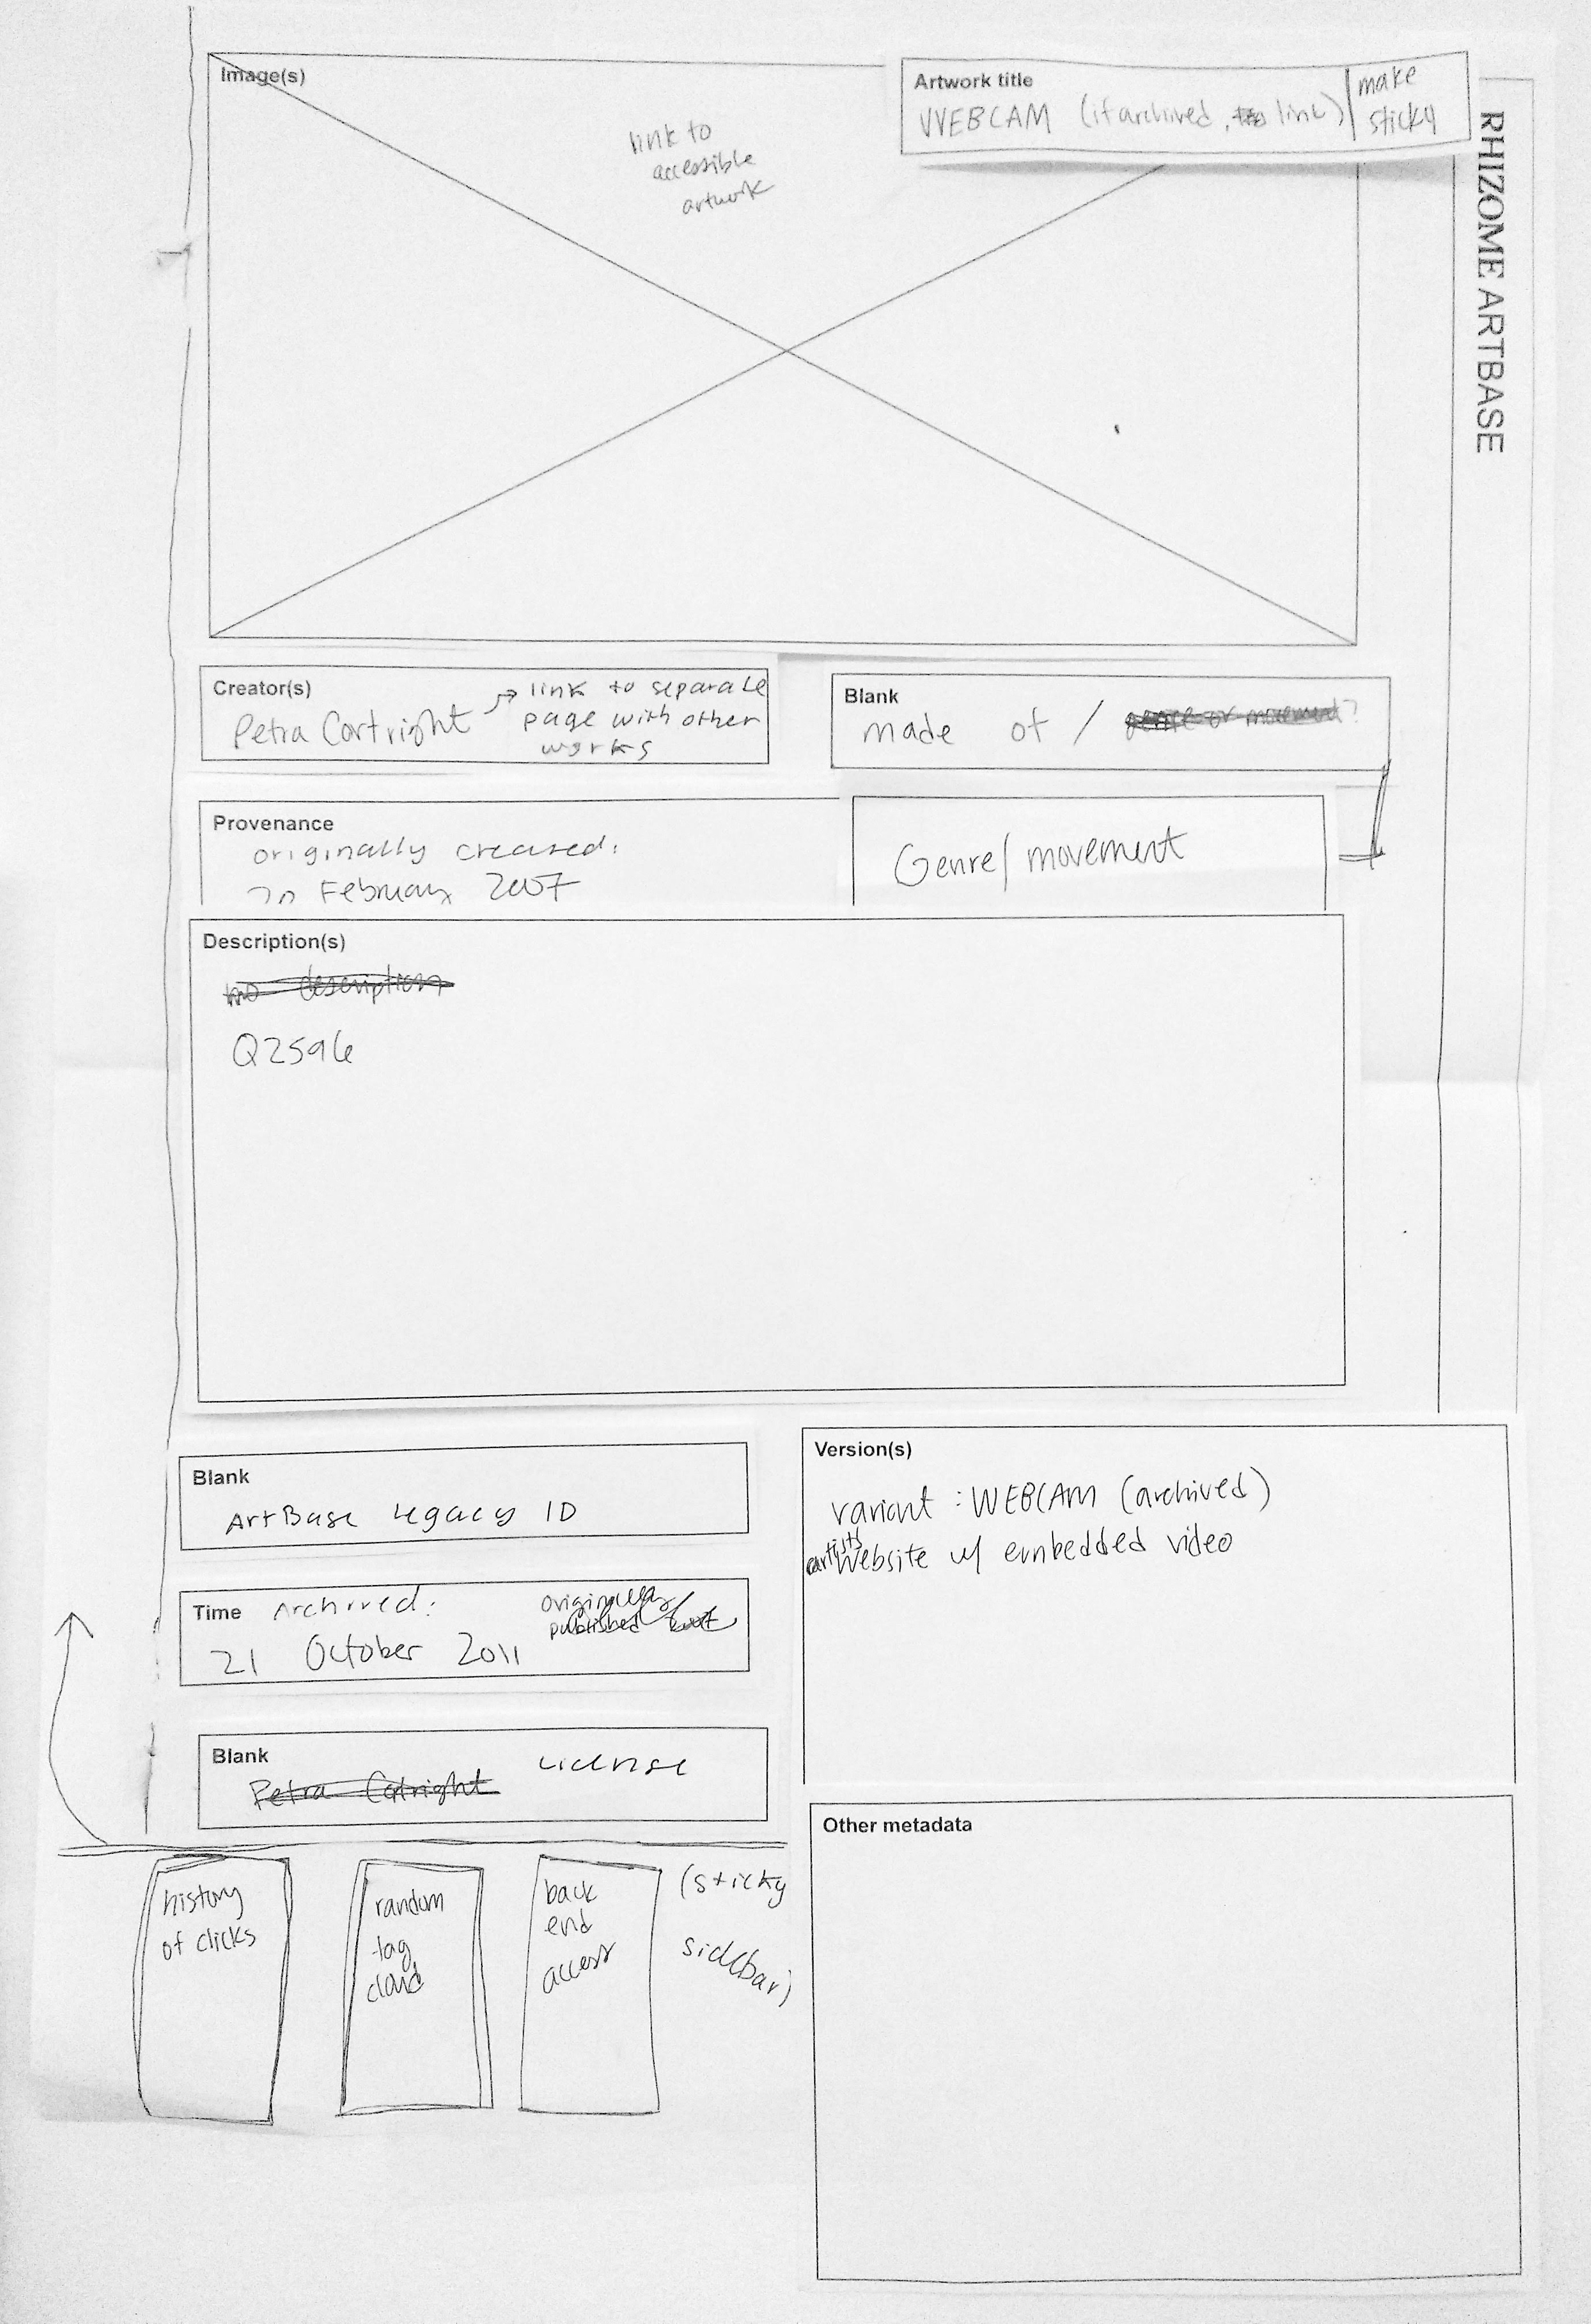 Image(s)
link to
accessible
artwork
Artwork title
VVEBCAM (if archived, link)
make
sticky
RHIZOME ARTBASE
Creator(s)
Petra Cortright
link to separate
page with other
works
Blank
made of / genre or movement?
Provenance
originally created:
20 February 2007
Genre/movement
Description(s)
no description
Q2596
Blank
ArtBase Legacy ID
Time Archived:
21 October 2011
originally
published
Blank
Petra Cortright
License
Version(s)
variant: WEBCAM (archived)
artists
website w/ embedded video
Other metadata
history
of clicks
random
tag
cloud
back
end
access
(sticky
sidebar)